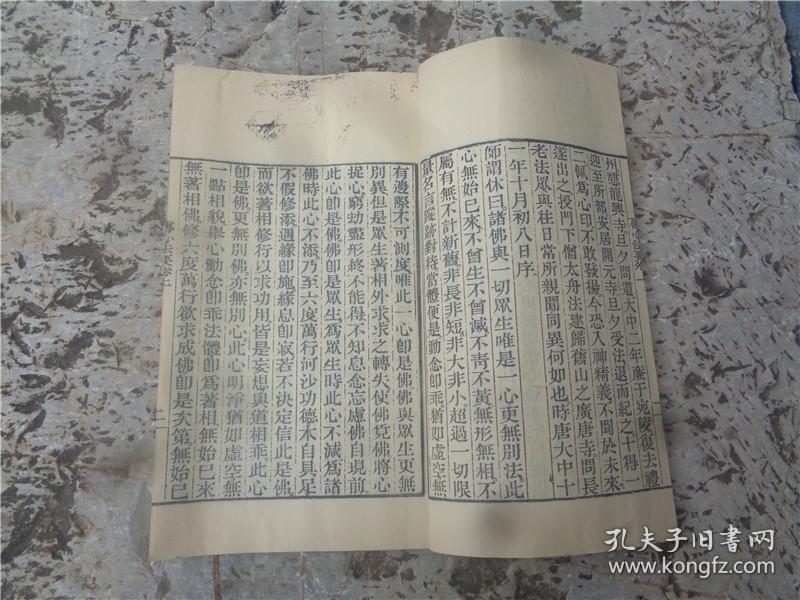 州憇龍興寺旦夕問道大中二年廉于宛陵復去禮
迎至所部安居開元寺旦夕受法退而紀之十得一
二佩為心印不敢發揚今恐入神精義不聞於未來
遂出之授門下僧太舟法建歸舊山之廣唐寺問長
老法眾與往日常所親聞同異何如也時唐大中十
一年十月初八日序
師謂休曰諸佛與一切眾生唯是一心更無別法此
心無始已來不曾生不曾滅不青不黃無形無相不
屬有無不計新舊非長非短非大非小超過一切限
量名言蹤跡對待當體便是動念即乖猶如虛空無
有邊際不可測度唯此一心即是佛佛與眾生更無
別異但是眾生著相外求求之轉失使佛覓佛將心
捉心窮劫盡形終不能得不知息念忘慮佛自現前
此心即是佛佛即是眾生為眾生時此心不減為諸
佛時此心不添乃至六度萬行河沙功德本自具足
不假修添遇緣即施緣息即寂若不決定信此是佛
而欲著相修行以求功用皆是妄想與道相乖此心
即是佛更無別佛亦無別心此心明淨猶如虛空無
一點相貌舉心動念即乖法體即為著相無始已來
無著相佛修六度萬行欲求成佛即是次第無始已
二
孔夫子旧書网
www.kongfz.com